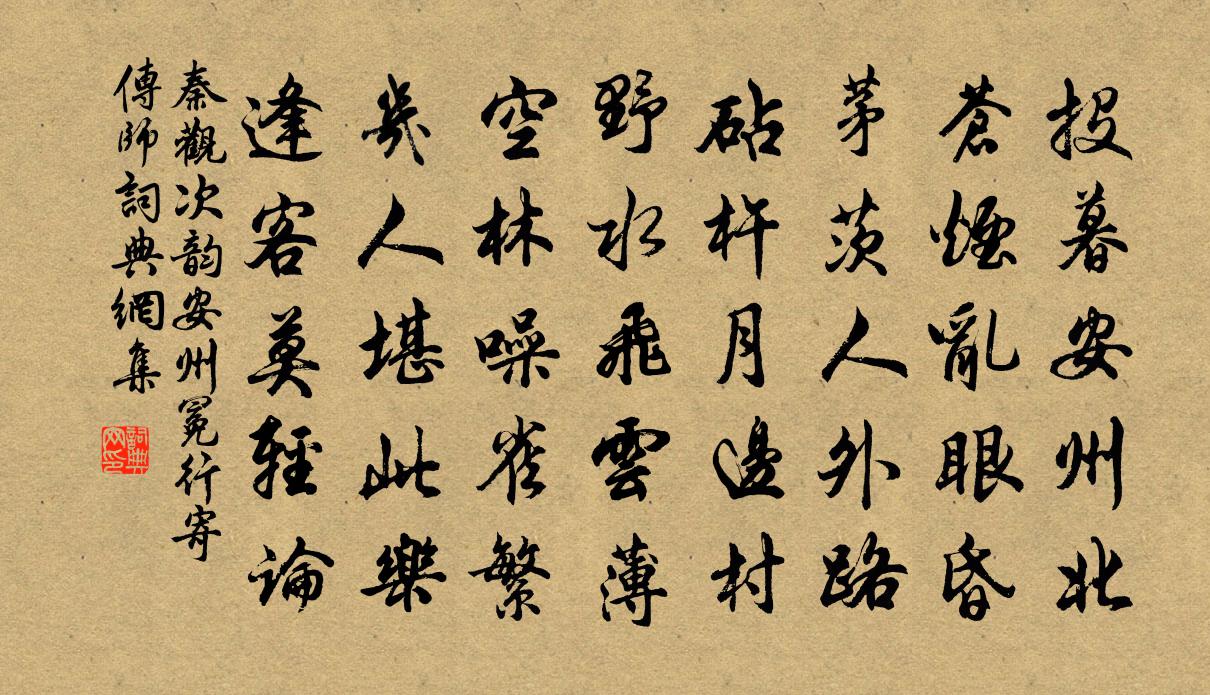 投暮安州北
蒼煙亂眼昏
茅茨人外路
砧杵月邊村
野水飛雲薄
空林噪雀繁
幾人堪此樂
逢客莫輕論
秦觀次韵安州晃行寄
傳師詞典網集
詞典網印